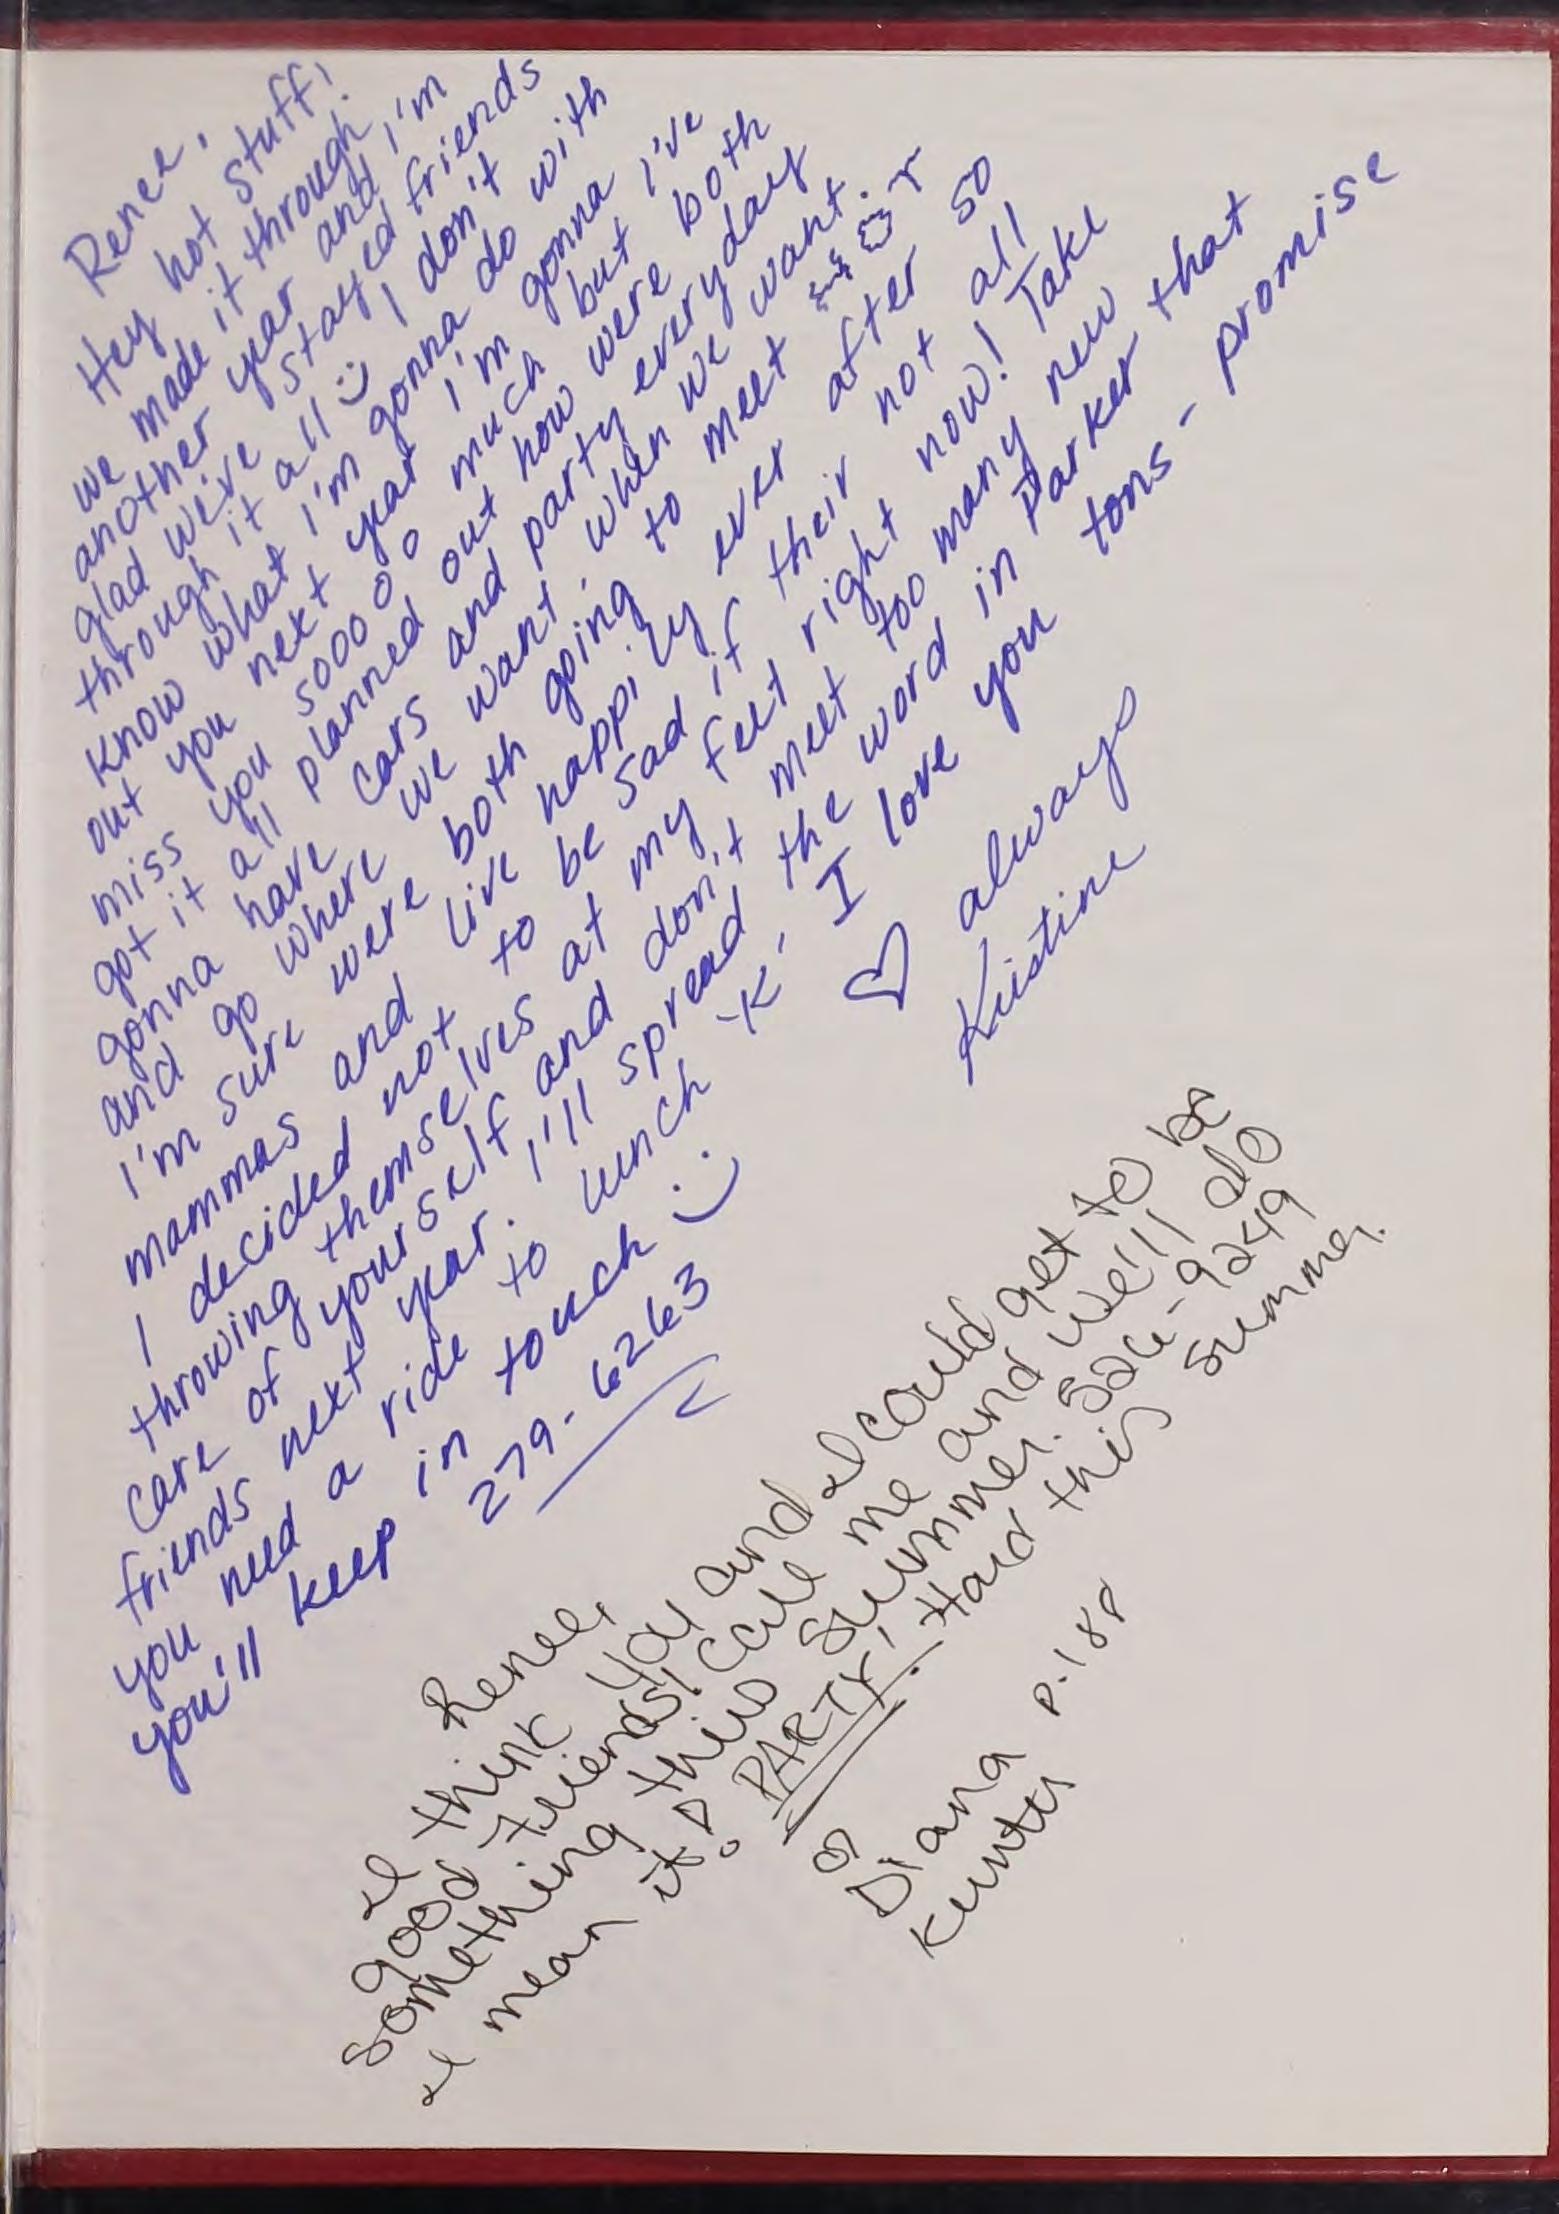 Renee,
Hey hot stuff!
we made it through
another year and I'm
glad we've stayed friends
through it all :) I don't
know what I'm gonna do with
out you next year I'm gonna
miss you soooooo much but I've
got it all planned out how were both
gonna have cars and party everyday
and go where we want, when we want.
I'm sure were both going to meet
mammas and live happily ever after so
I decided not to be sad if their not all
throwing themselves at my feet right now! Take
care of yourself and don't meet too many new
friends next year. I'll spread the word in Parker that
you need a ride to lunch 'K' I love you tons - promise
you'll keep in touch :)
♡ always
279-6263
Kristine
Renee,
I think you and I could get to be
good friends! Call me and we'll do
something this summer. 526-9249
I mean it! PARTY! Hard this summer.
Diana p.188